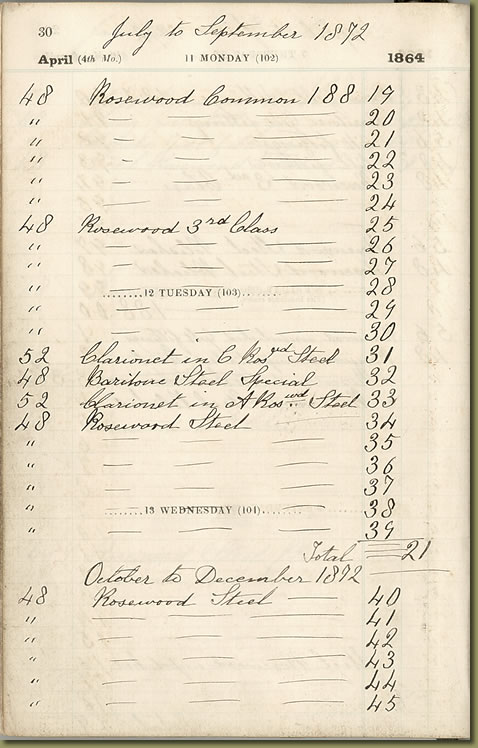 30 July to September 1872
April (4th Mo.) 11 MONDAY (102) 1864
48 Rosewood Common 188 19
" — — — 20
" — — — 21
" — — — 22
" — — — 23
" — — — 24
48 Rosewood 3rd Class 25
" — — — 26
" — — — 27
" ........12 TUESDAY (103)....... 28
" — — — 29
" — — — 30
52 Clarionet in C Roswd Steel 31
48 Baritone Steel Special 32
52 Clarionet in A Roswd Steel 33
48 Rosewood Steel 34
" — — — 35
" — — — 36
" — — — 37
" ........13 WEDNESDAY (104)....... 38
" — — — 39
Total 21
October to December 1872
48 Rosewood Steel — 40
" — — — 41
" — — — 42
" — — — 43
" — — — 44
" — — — 45